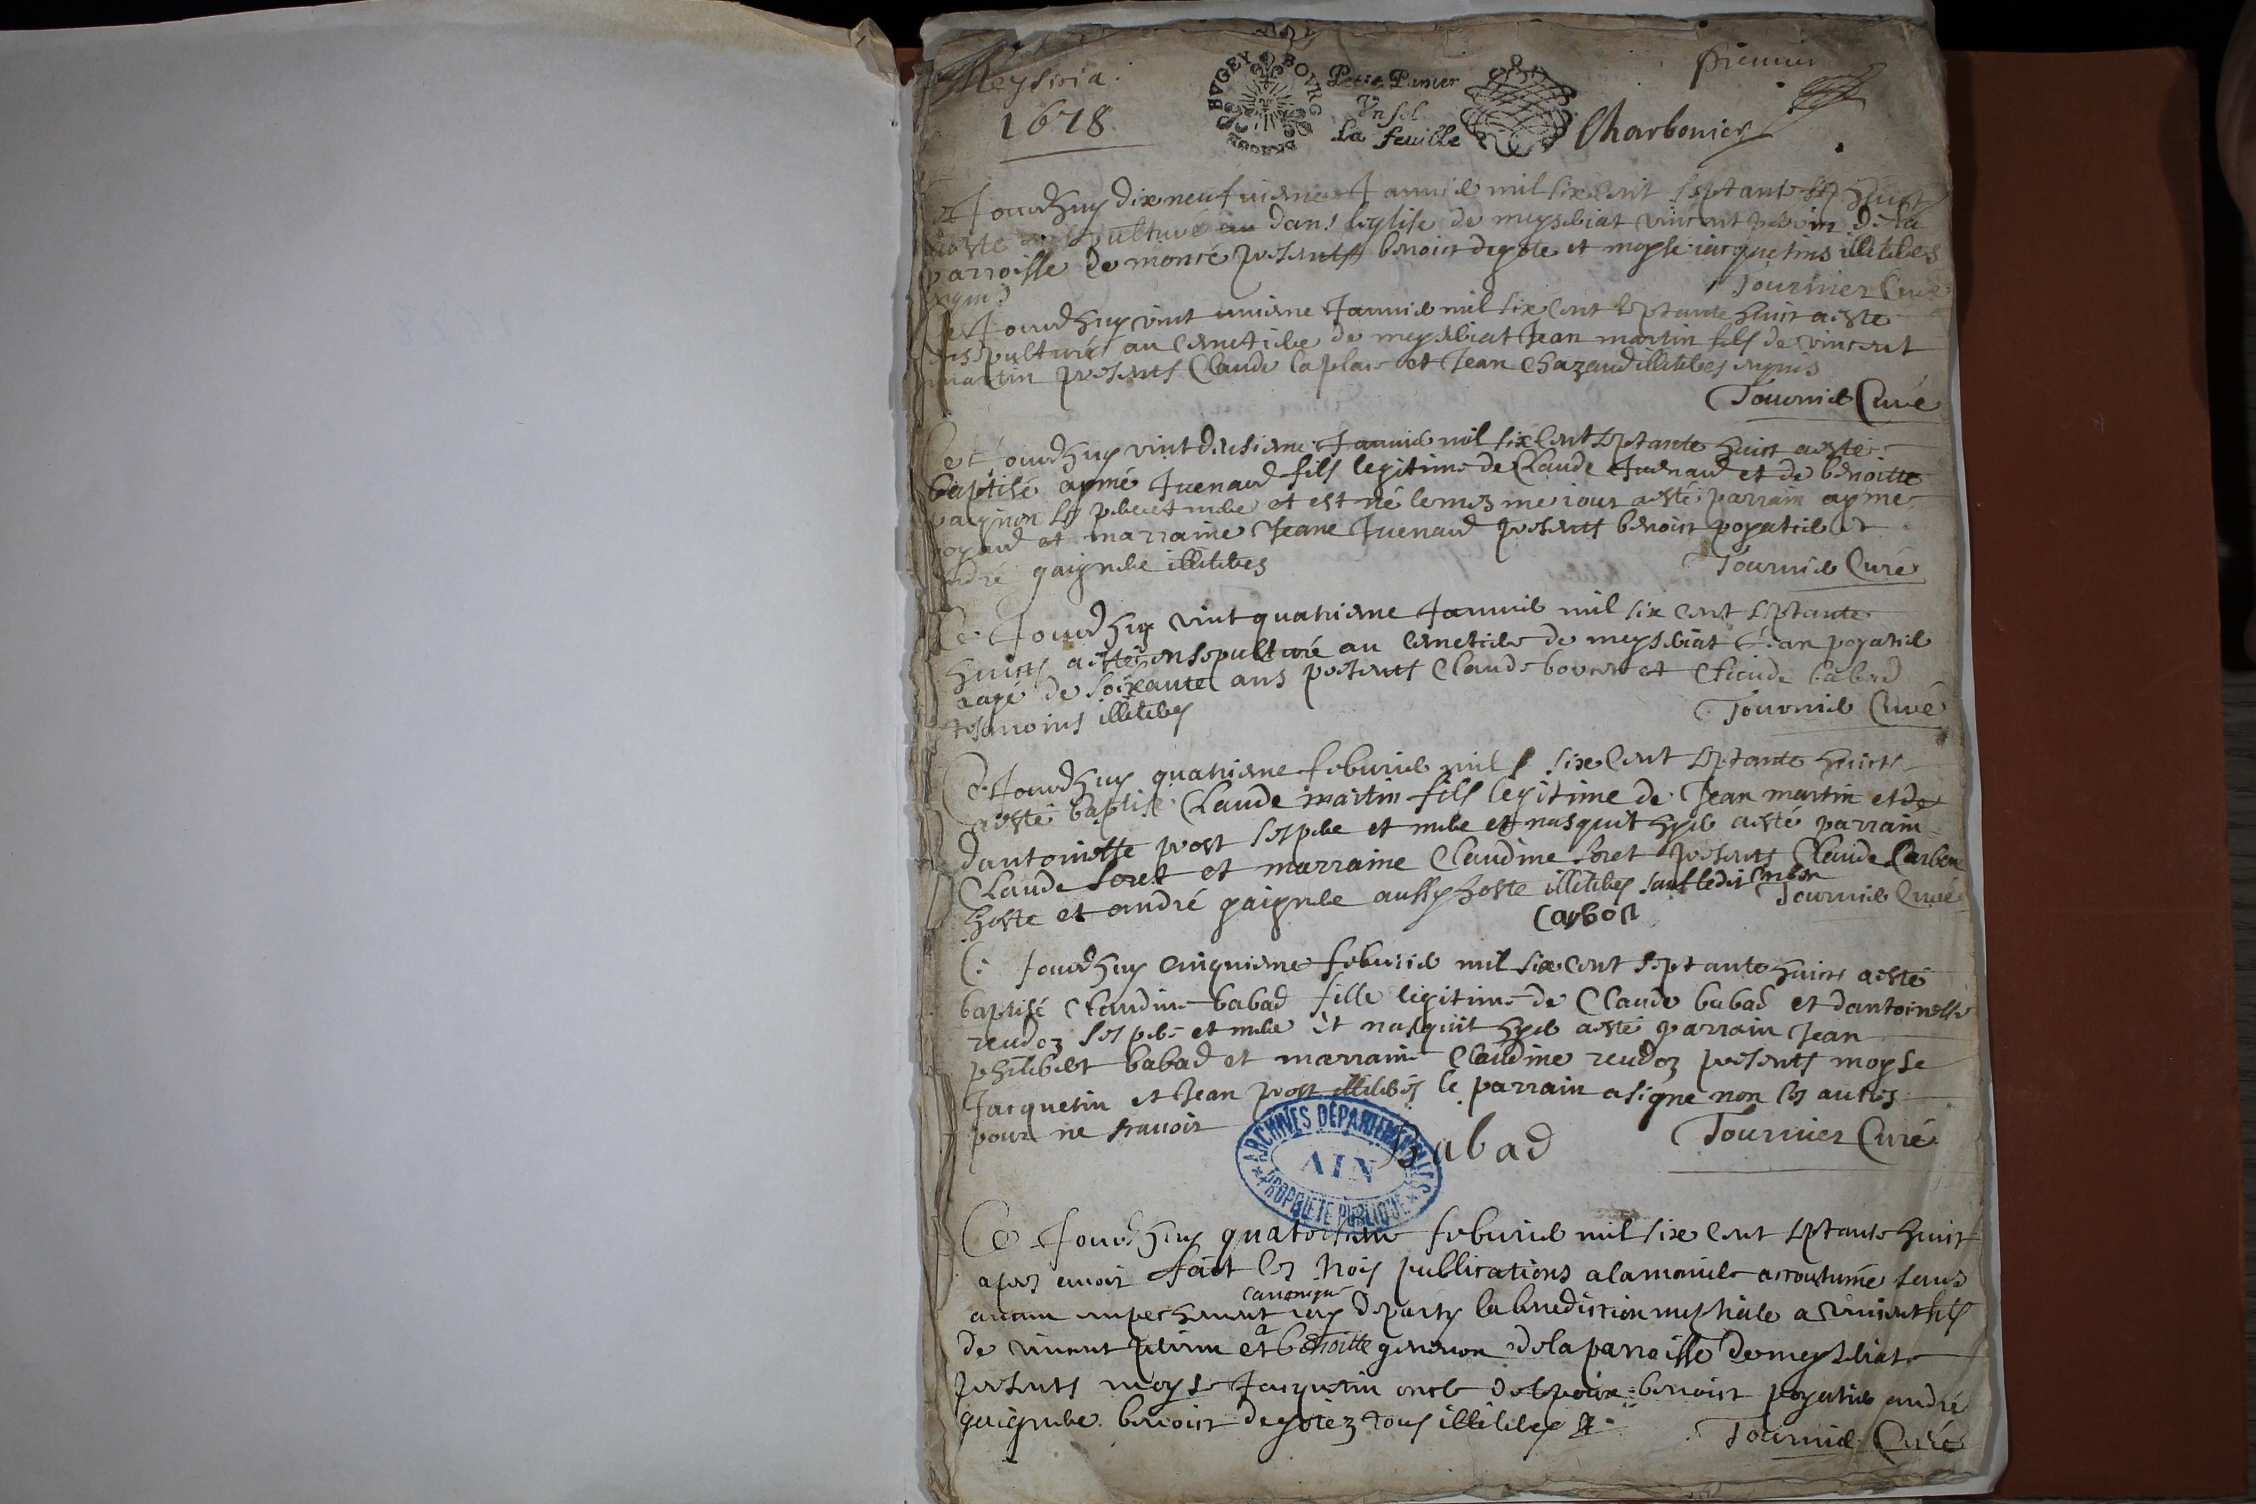 Meyseria
1678
BVGEY BOVRG
Petit Papier
Vn sol
La feuille
premier
Charbonier
Ce Jourdhuy dix neufuieme Januier mil six cent septante huict
dans leglise de meyseriat vincent de la
parroisse de presents benoist degote et moyse iacquetins illiteres
Tournier Curé
Ce Jourdhuy vint unieme Januier mil six cent septante huict a este
ensepulturé au cemetiere de meyseriat Jean martin fils de vincent
martin presents Claude laplace et Jean Chazaud illiteres
Tournier Curé
Ce Jourdhuy vint deusieme Januier mil six cent septante huict a esté
baptisé aymé Juenaud fils legitime de Claude Juenaud et de benoitte
pere et mere et est né le mesme iour a esté parrain ayme
et marraine Jeane Juenaud presents benoist poyatier et
andré gaignere illiteres
Tournier Curé
Ce Jourdhuy vint quatrieme Januier mil six cent septante
huict a esté ensepulturé au cemetiere de meyseriat Jean poyatier
aagé de soixante ans presents Claude et Claude babad
tesmoins illiteres
Tournier Curé
Ce Jourdhuy quatrieme feburier mil six cent septante huict
a esté baptisé Claude martin fils legitime de Jean martin et de
dantoinette prost ses pere et mere et nasquit hyer a esté parrain
Claude soret et marraine Claudine soret presents Claude Carbon
hoste et andré gaignere aussy hoste illiteres sauf ledit Carbon
Tournier Curé
Carbon
Ce Jourdhuy cinquieme feburier mil six cent septante huict a esté
baptisé Claudine babad fille legitime de Claude babad et dantoinette
reudoz ses pere et mere et nasquit hyer a esté parrain Jean
philibert babad et marraine Claudine reudoz presents moyse
Jacquetin et Jean prost illiteres le parrain a signé non les autres
pour ne scauoir
Babad
Tournier Curé
ARCHIVES DÉPARTEMENTALES
AIN
PROPRIÉTÉ PUBLIQUE
Ce Jourdhuy quatorsieme feburier mil six cent septante huict
apres auoir fait les trois publications a la maniere accoutumé sans
aucun empechement canonique iay departy la benediction nuptiale a vincent fils
de vincent et a benoitte de la parroisse de meyseriat
presents moyse Jacquetin oncle benoist poyatier andré
gaignere benoist degotez tous illiteres
Tournier Curé